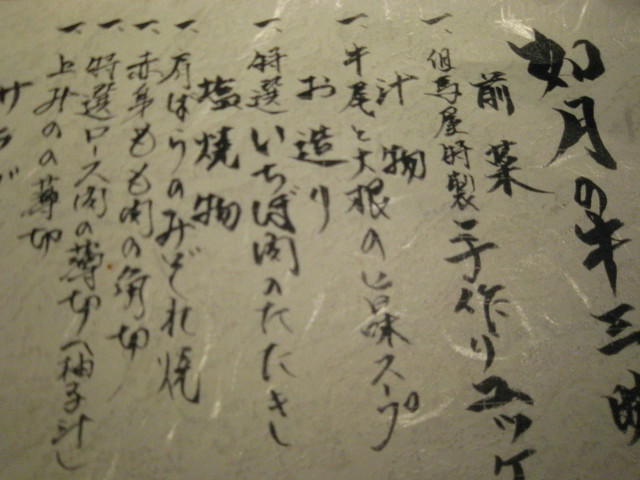 如月の牛三
前菜
一、但馬屋特製 手作りユッケ
汁物
一、牛尾と大根の旨味スープ
お造り
一、特選いちぼ肉のたたき
塩焼物
一、肩ばらのみぞれ焼
一、赤身もも肉の角切
一、特選ロース肉の薄切(柚子汁)
一、上みのの薄切
サラダ